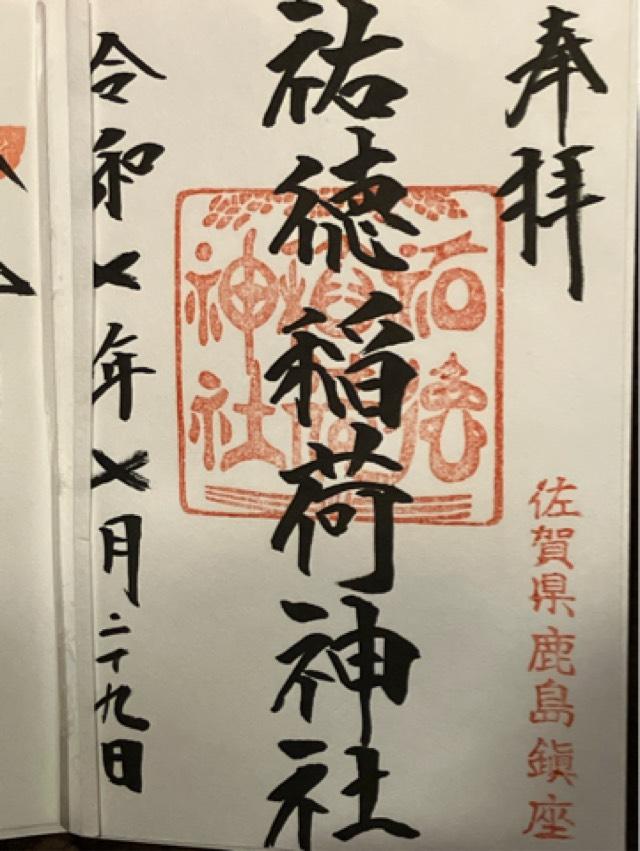 奉拝
佐賀県鹿島鎮座
祐徳稲荷神社
祐徳
稲荷
神社
令和七年七月二十九日